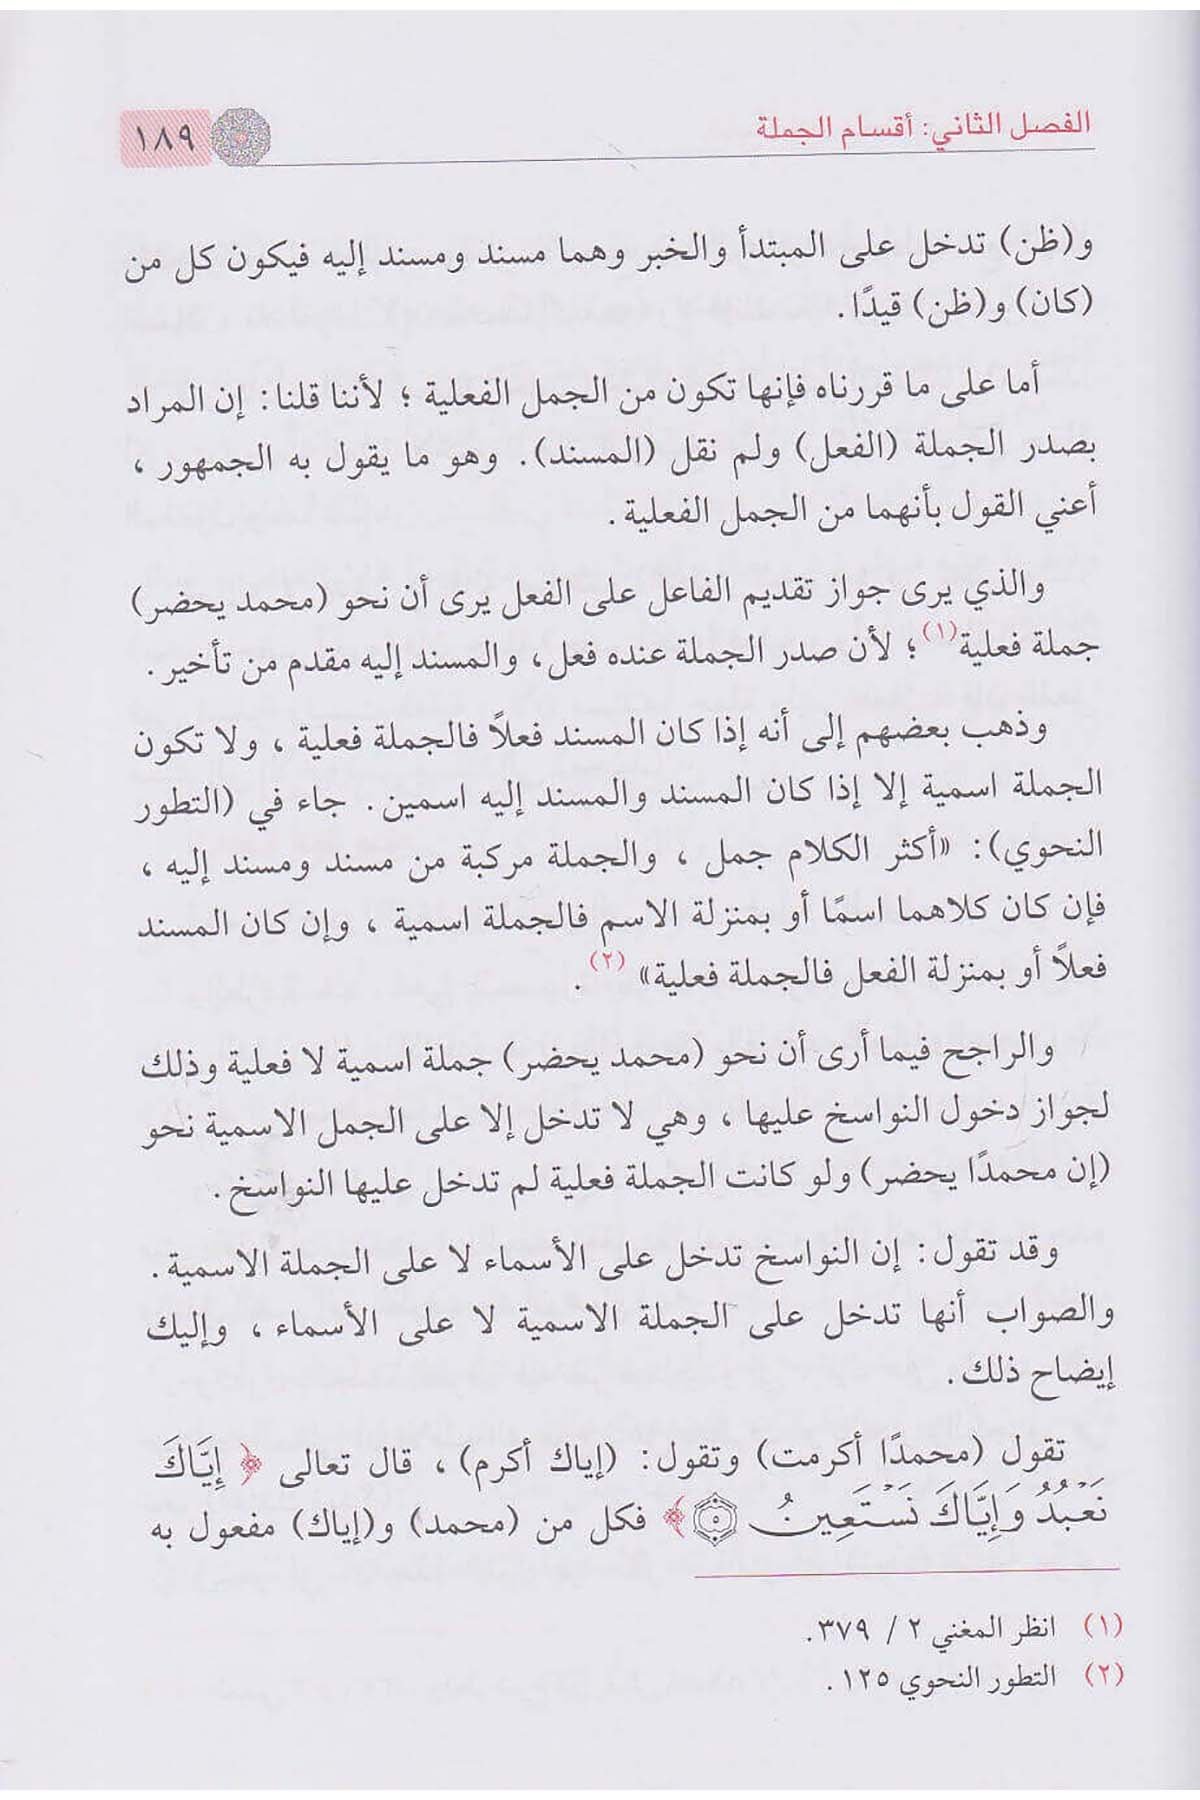 الفصل الثاني: أقسام الجملة
١٨٩
و(ظن) تدخل على المبتدأ والخبر وهما مسند ومسند إليه فيكون كل من
(كان) و(ظن) قيدًا.
أما على ما قررناه فإنها تكون من الجمل الفعلية ؛ لأننا قلنا: إن المراد
بصدر الجملة (الفعل) ولم نقل (المسند). وهو ما يقول به الجمهور ،
أعني القول بأنهما من الجمل الفعلية .
والذي يرى جواز تقديم الفاعل على الفعل يرى أن نحو (محمد يحضر)
جملة فعلية(١) ؛ لأن صدر الجملة عنده فعل، والمسند إليه مقدم من تأخير.
وذهب بعضهم إلى أنه إذا كان المسند فعلاً فالجملة فعلية ، ولا تكون
الجملة اسمية إلا إذا كان المسند والمسند إليه اسمين. جاء في (التطور
النحوي): «أكثر الكلام جمل ، والجملة مركبة من مسند ومسند إليه ،
فإن كان كلاهما اسمًا أو بمنزلة الاسم فالجملة اسمية ، وإن كان المسند
فعلاً أو بمنزلة الفعل فالجملة فعلية» (٢) .
والراجح فيما أرى أن نحو (محمد يحضر) جملة اسمية لا فعلية وذلك
لجواز دخول النواسخ عليها ، وهي لا تدخل إلا على الجمل الاسمية نحو
(إن محمدًا يحضر) ولو كانت الجملة فعلية لم تدخل عليها النواسخ.
وقد تقول: إن النواسخ تدخل على الأسماء لا على الجملة الاسمية.
والصواب أنها تدخل على الجملة الاسمية لا على الأسماء ، وإليك
إيضاح ذلك.
تقول (محمدًا أكرمت) وتقول: (إياك أكرم) ، قال تعالى ﴿ إِيَّاكَ
نَعْبُدُ وَإِيَّاكَ نَسْتَعِينُ ٥ ﴾ فكل من (محمد) و(إياك) مفعول به
(١) انظر المغني ٢ / ٣٧٩.
(٢) التطور النحوي ١٢٥ .